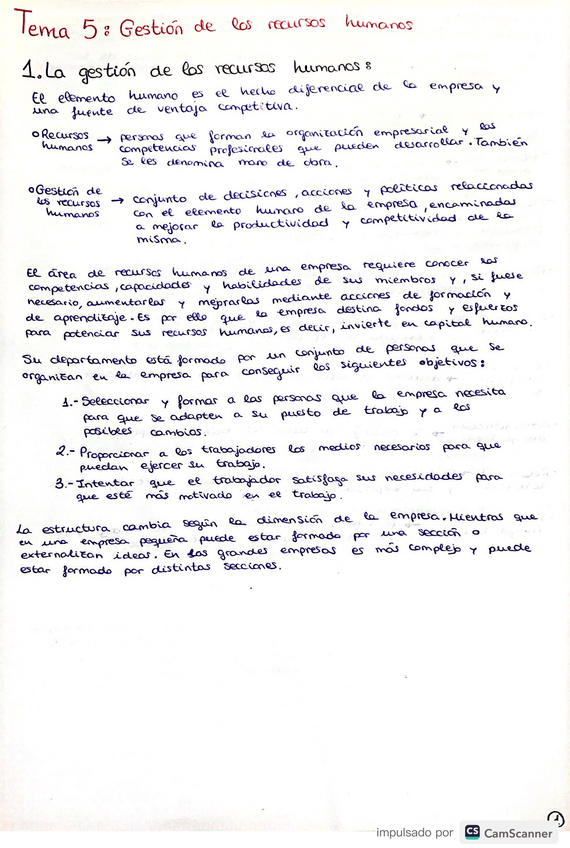 Tema 5: Gestión de los recursos humanos
1. La gestión de los recursos humanos:
El elemento humano es el hecho diferencial de la empresa y
una fuente de ventaja competitiva.
Recursos humanos → personas que forman la organización empresarial y las
competencias profesionales que pueden desarrollar. También
se les denomina mano de obra.
Gestión de los recursos humanos → conjunto de decisiones, acciones y políticas relaccionadas
con el elemento humano de la empresa, encaminadas
a mejorar la productividad y competitividad de la
misma.
El área de recursos humanos de una empresa requiere conocer las
competencias, capacidades y habilidades de sus miembros y, si fuese
necesario, aumentarlas y mejorarlas mediante acciones de formación y
de aprendizaje. Es por ello que la empresa destina fondos y esfuerzos
para potenciar sus recursos humanos, es decir, invierte en capital humano.
Su departamento está formado por un conjunto de personas que se
organizan en la empresa para conseguir los siguientes objetivos:
1.- Seleccionar y formar a las personas que la empresa necesita
para que se adapten a su puesto de trabajo y a los
posibles cambios.
2.- Proporcionar a los trabajadores los medios necesarios para que
puedan ejercer su trabajo.
3.- Intentar que el trabajador satisfaga sus necesidades para
que esté más motivado en el trabajo.
La estructura cambia según la dimensión de la empresa. Mientras que
en una empresa pequeña puede estar formado por una sección o
externalizan ideas. En las grandes empresas es más complejo y puede
estar formado por distintas secciones.
1
impulsado por CS CamScanner